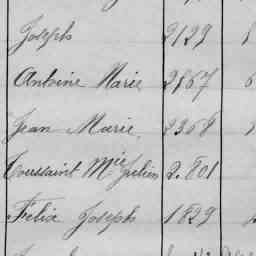 Joseph 2129
Antoine Marie 2867
Jean Marie 2368
Toussaint Mie Julien 2.801
Felix Joseph 1829